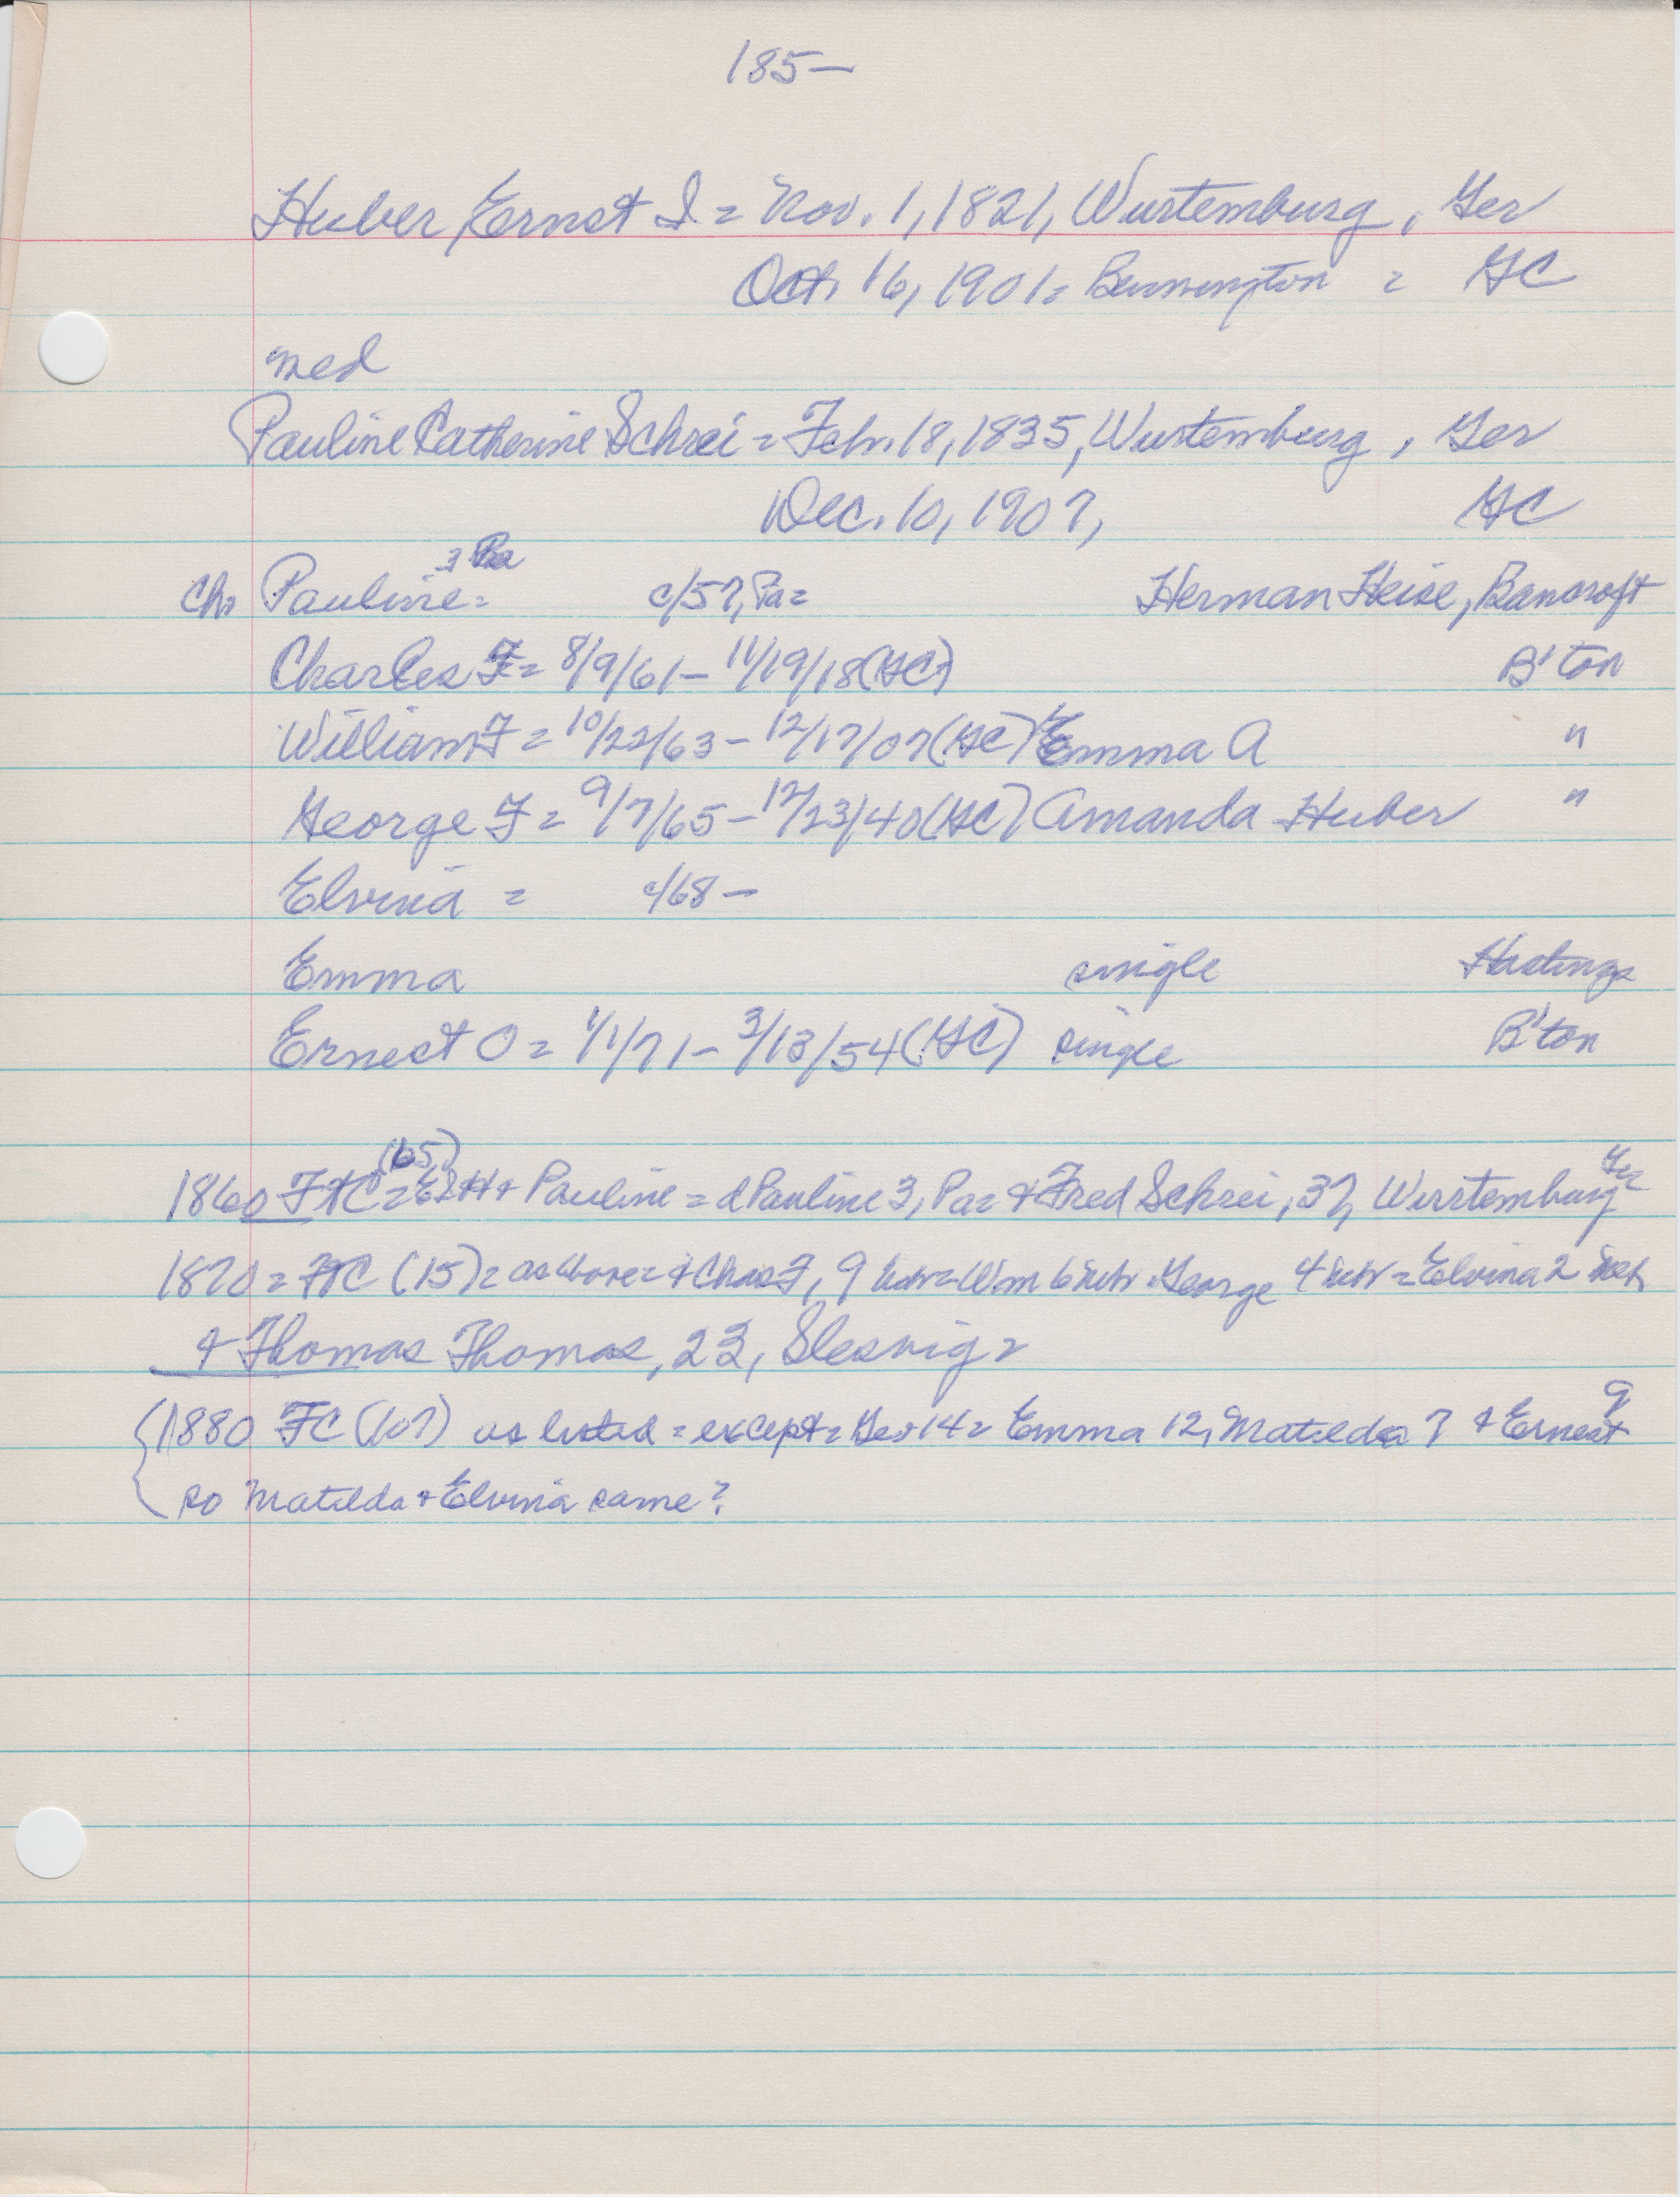 185—
Huber, Ernst I = Nov. 1, 1821, Wurtemburg, Ger
Oct. 16, 1901 = Bennington = GC
med
Pauline Catherine Schrei = Feb. 18, 1835, Wurtemburg, Ger
Dec. 10, 1907, GC
3 Pa
Ch= Pauline = c/57, Pa = Herman Heise, Bancroft
Charles F = 8/9/61 – 11/19/18 (GC) B'ton
William F = 10/22/63 – 12/17/07 (GC) Emma A "
George F = 9/7/65 – 12/23/40 (GC) Amanda Huber "
Elvina = c/68 –
Emma single Hastings
Ernest O = 1/1/71 – 3/13/54 (GC) single B'ton
(65) Ger
1860 FTC = & Pauline = d Pauline 3, Pa = & Fred Schrei, 37, Wurtemburg
1870 = FTC (15) = as above = & Chas F, 9 = Wm 6 George 4 = Elvina 2
& Thomas Thomas, 23, Slesvig =
9
(1880 FC (107) as listed = except = Geo 14 = Emma 12, Matilda 7 & Ernest
so Matilda & Elvina same?